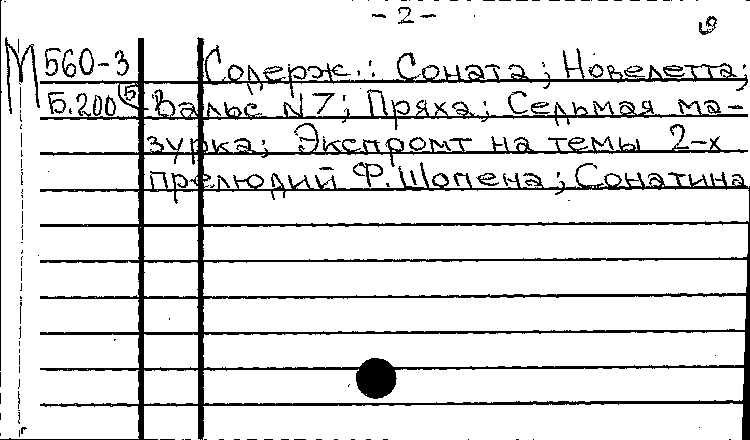 - 2 -
М 560-3 Содерж.: Соната; Новелетта;
Б.200 Вальс N 7; Пряха; Седьмая ма-
зурка; Экспромт на темы 2-х
прелюдий Ф. Шопена; Сонатина